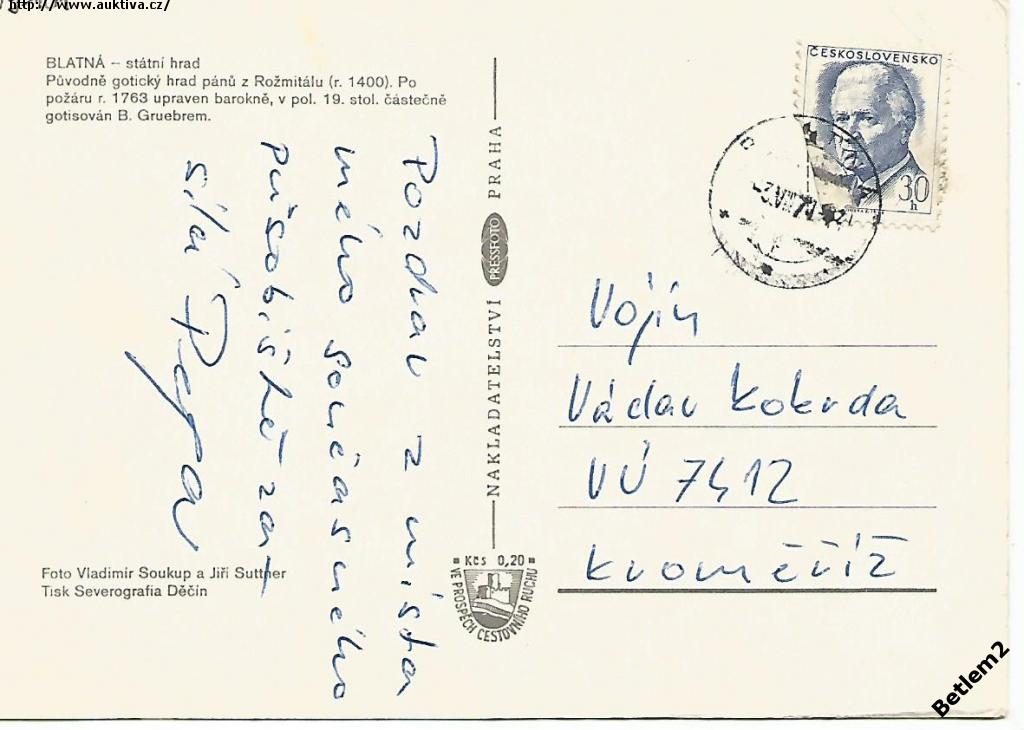 http://www.auktiva.cz/
BLATNÁ – státní hrad
Původně gotický hrad pánů z Rožmitálu (r. 1400). Po
požáru r. 1763 upraven barokně, v pol. 19. stol. částečně
gotisován B. Gruebrem.
Pozdrav z místa
mého současného
působiště zas
sílá
Foto Vladimír Soukup a Jiří Suttner
Tisk Severografia Děčín
NAKLADATELSTVÍ PRESSFOTO PRAHA
Kčs 0,20
VE PROSPĚCH CESTOVNÍHO RUCHU
ČESKOSLOVENSKO
30 h
Vojín
Václav Kokrda
VÚ 7412
Kroměříž
Betlem2